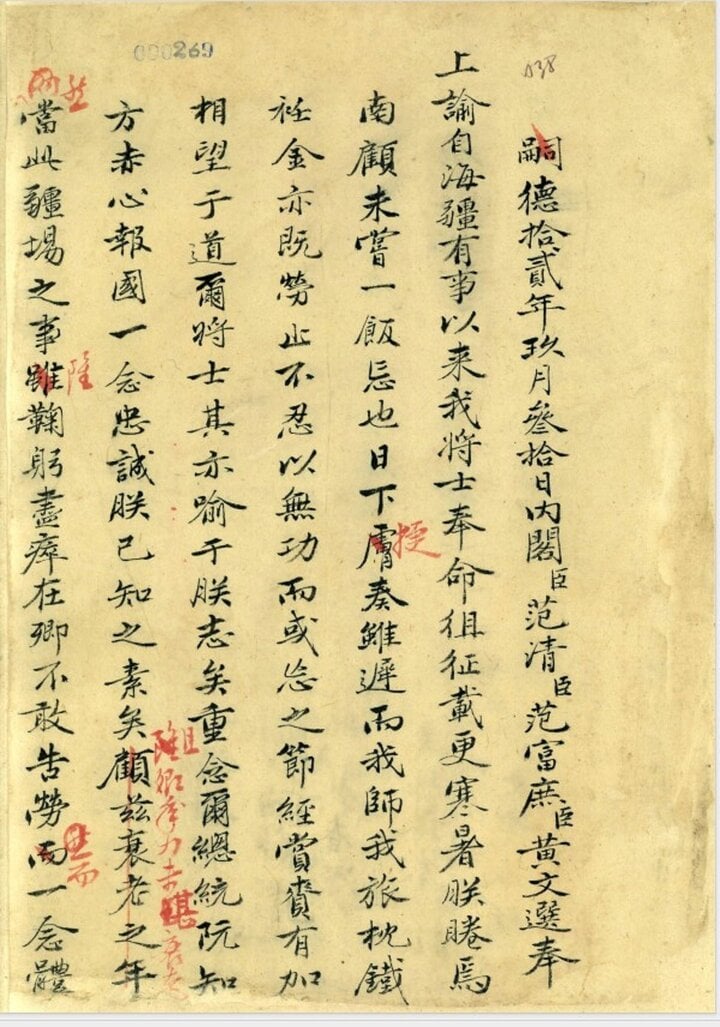 000269
038
嗣德拾貳年玖月叁拾日内閣臣范清臣范富庶臣黃文選奉
上諭自海疆有事以来我将士奉命徂征載更寒暑朕睠焉
南顧未嘗一飯忘也日下膚奏雖遲而我師我旅枕鐵
衽金亦既勞止不忍以無功而或忘之節經賞賚有加
相望于道爾将士其亦喻于朕志矣重念爾總統阮知
方赤心報國一念忠誠朕已知之素矣顧兹衰老之年
當此疆場之事雖鞠躬盡瘁在卿不敢告勞而一念體
然
而